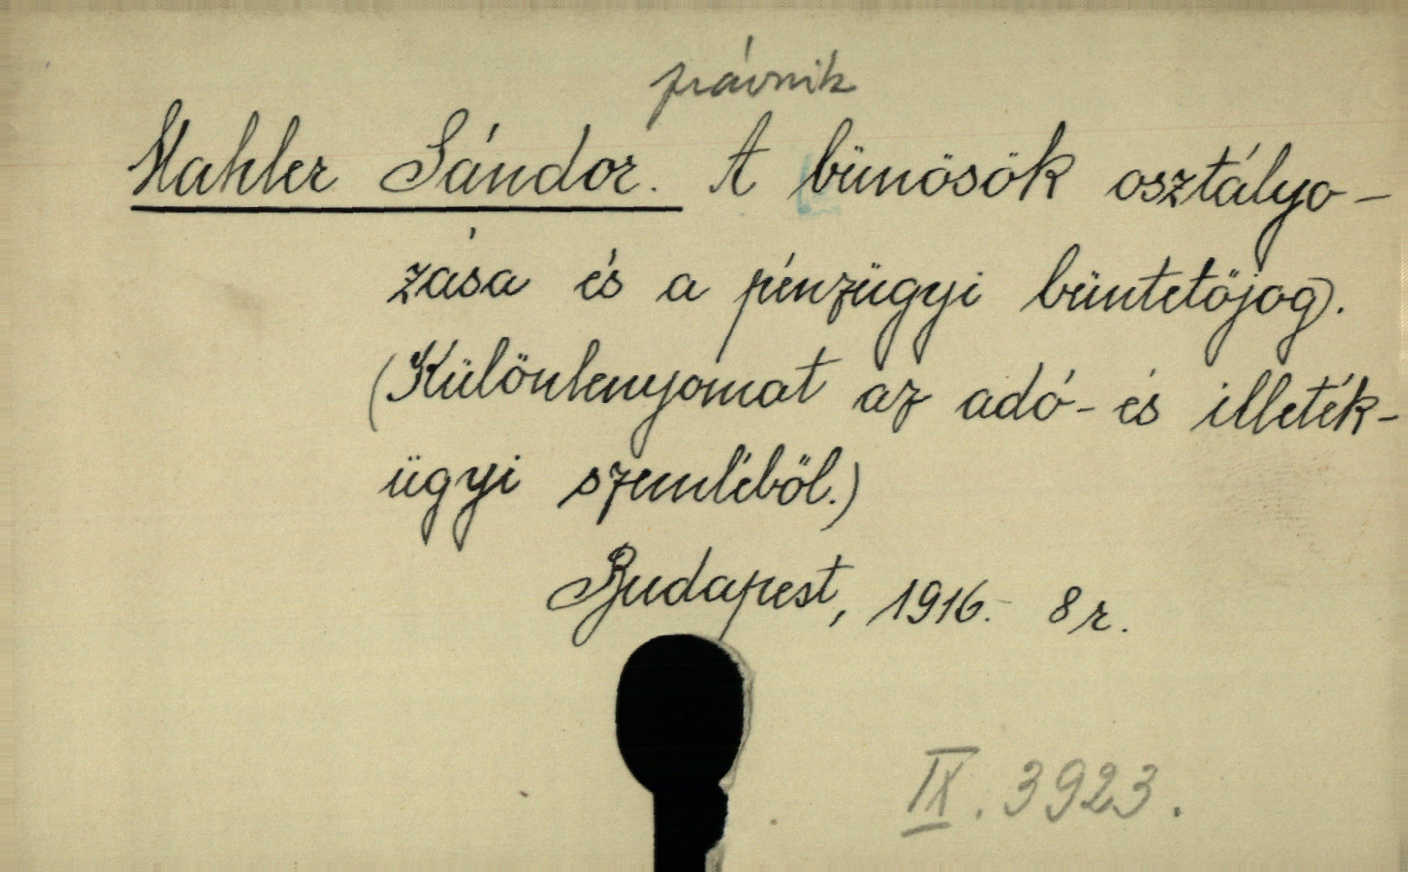 právnik
Mahler Sándor. A bünösök osztályo-
zása és a pénzügyi büntetöjog).
(Különlenyomat az adó- és illeték-
ügyi szemléböl.)
Budapest, 1916. 8r.
IX. 3923.